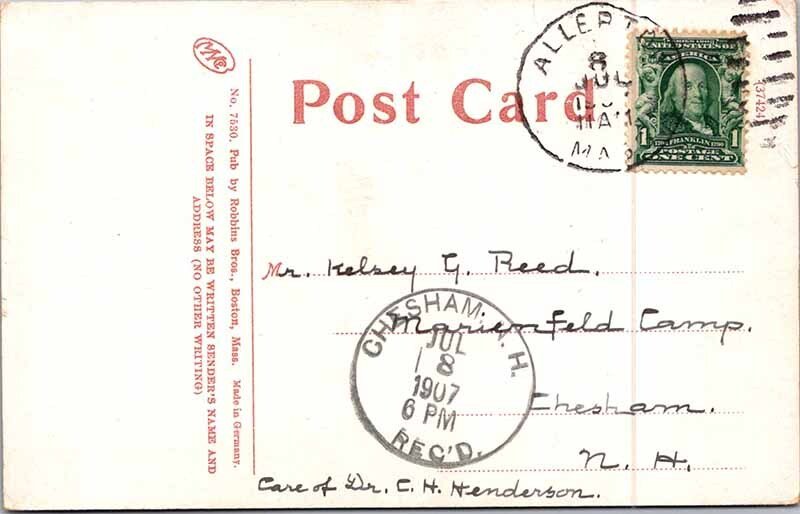 Post Card
No. 7530. Pub by Robbins Bros., Boston, Mass. Made in Germany.
IN SPACE BELOW MAY BE WRITTEN SENDER'S NAME AND
ADDRESS (NO OTHER WRITING)
8
JUL
SERIES 1902
UNITED STATES OF
AMERICA
FRANKLIN
POSTAGE
1 1
ONE CENT
Mr. Kelsey G. Reed.
Marienfeld Camp.
Chesham.
N. H.
Care of Dr. C. H. Henderson.
CHESHAM, N. H.
JUL
18
1907
6 PM
REC'D.